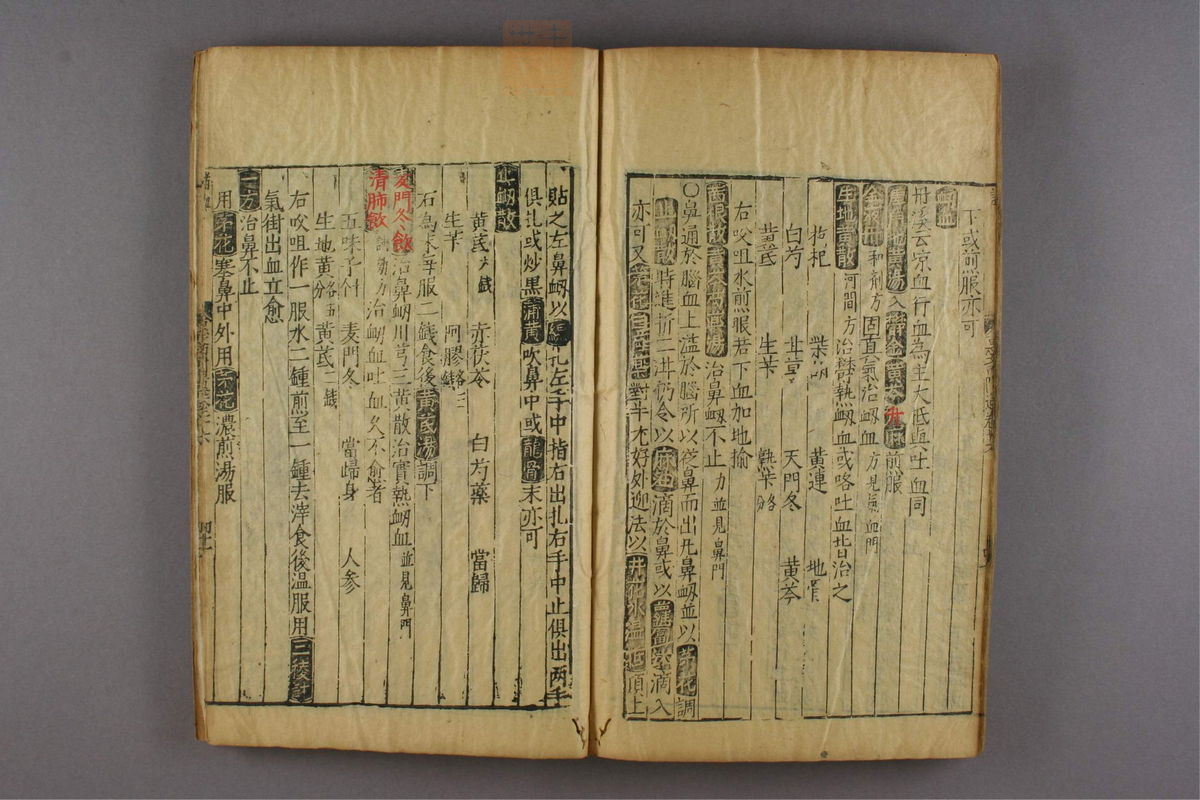 下或煎服亦可
衄血
丹溪云凉血行血為主大抵與吐血同
犀角地黄湯入鬱金黄芩升麻煎服
金 丹和劑方固真氣治衄血方見氣血門
生地黄散河間方治鬱熱衄血或咯吐血皆治之
枸杞 柴胡 黄連 地骨
白芍 甘草 天門冬 黄芩
黄芪 生苄 熟苄各
右㕮咀水煎服若下血加地榆
茜根散黄芩芍藥湯治鼻衄不止方並見鼻門
○鼻通於腦血上溢於腦所以從鼻而出凡鼻衄並以茅花調
止衄散時進折二泔仍令以麻油滴於鼻或以蘿蔔汁滴入
亦可又茅花白芍藥對半尤好外迎法以井花水温 頂上
貼之左鼻衄以線扎左手中指右出扎右手中止俱出两手
俱扎或炒黑蒲黄吹鼻中或龍骨末亦可
止衄散
黄芪六錢 赤茯苓 白芍藥 當歸
生苄 阿膠各三錢
右為末每服二錢食後黄芪湯調下
麦門冬飲治鼻衄川芎三黄散治實熱衄血並見鼻門
清肺飲 治衄血吐血久不愈者
五味子什 麦門冬 當歸身 人参
生地黄各五分 黄芪二錢
右㕮咀作一服水二鍾煎至一鍾去滓食後温服用三稜針
氣街出血立愈
一方治鼻不止
用茅花塞鼻中外用茅花濃煎湯服